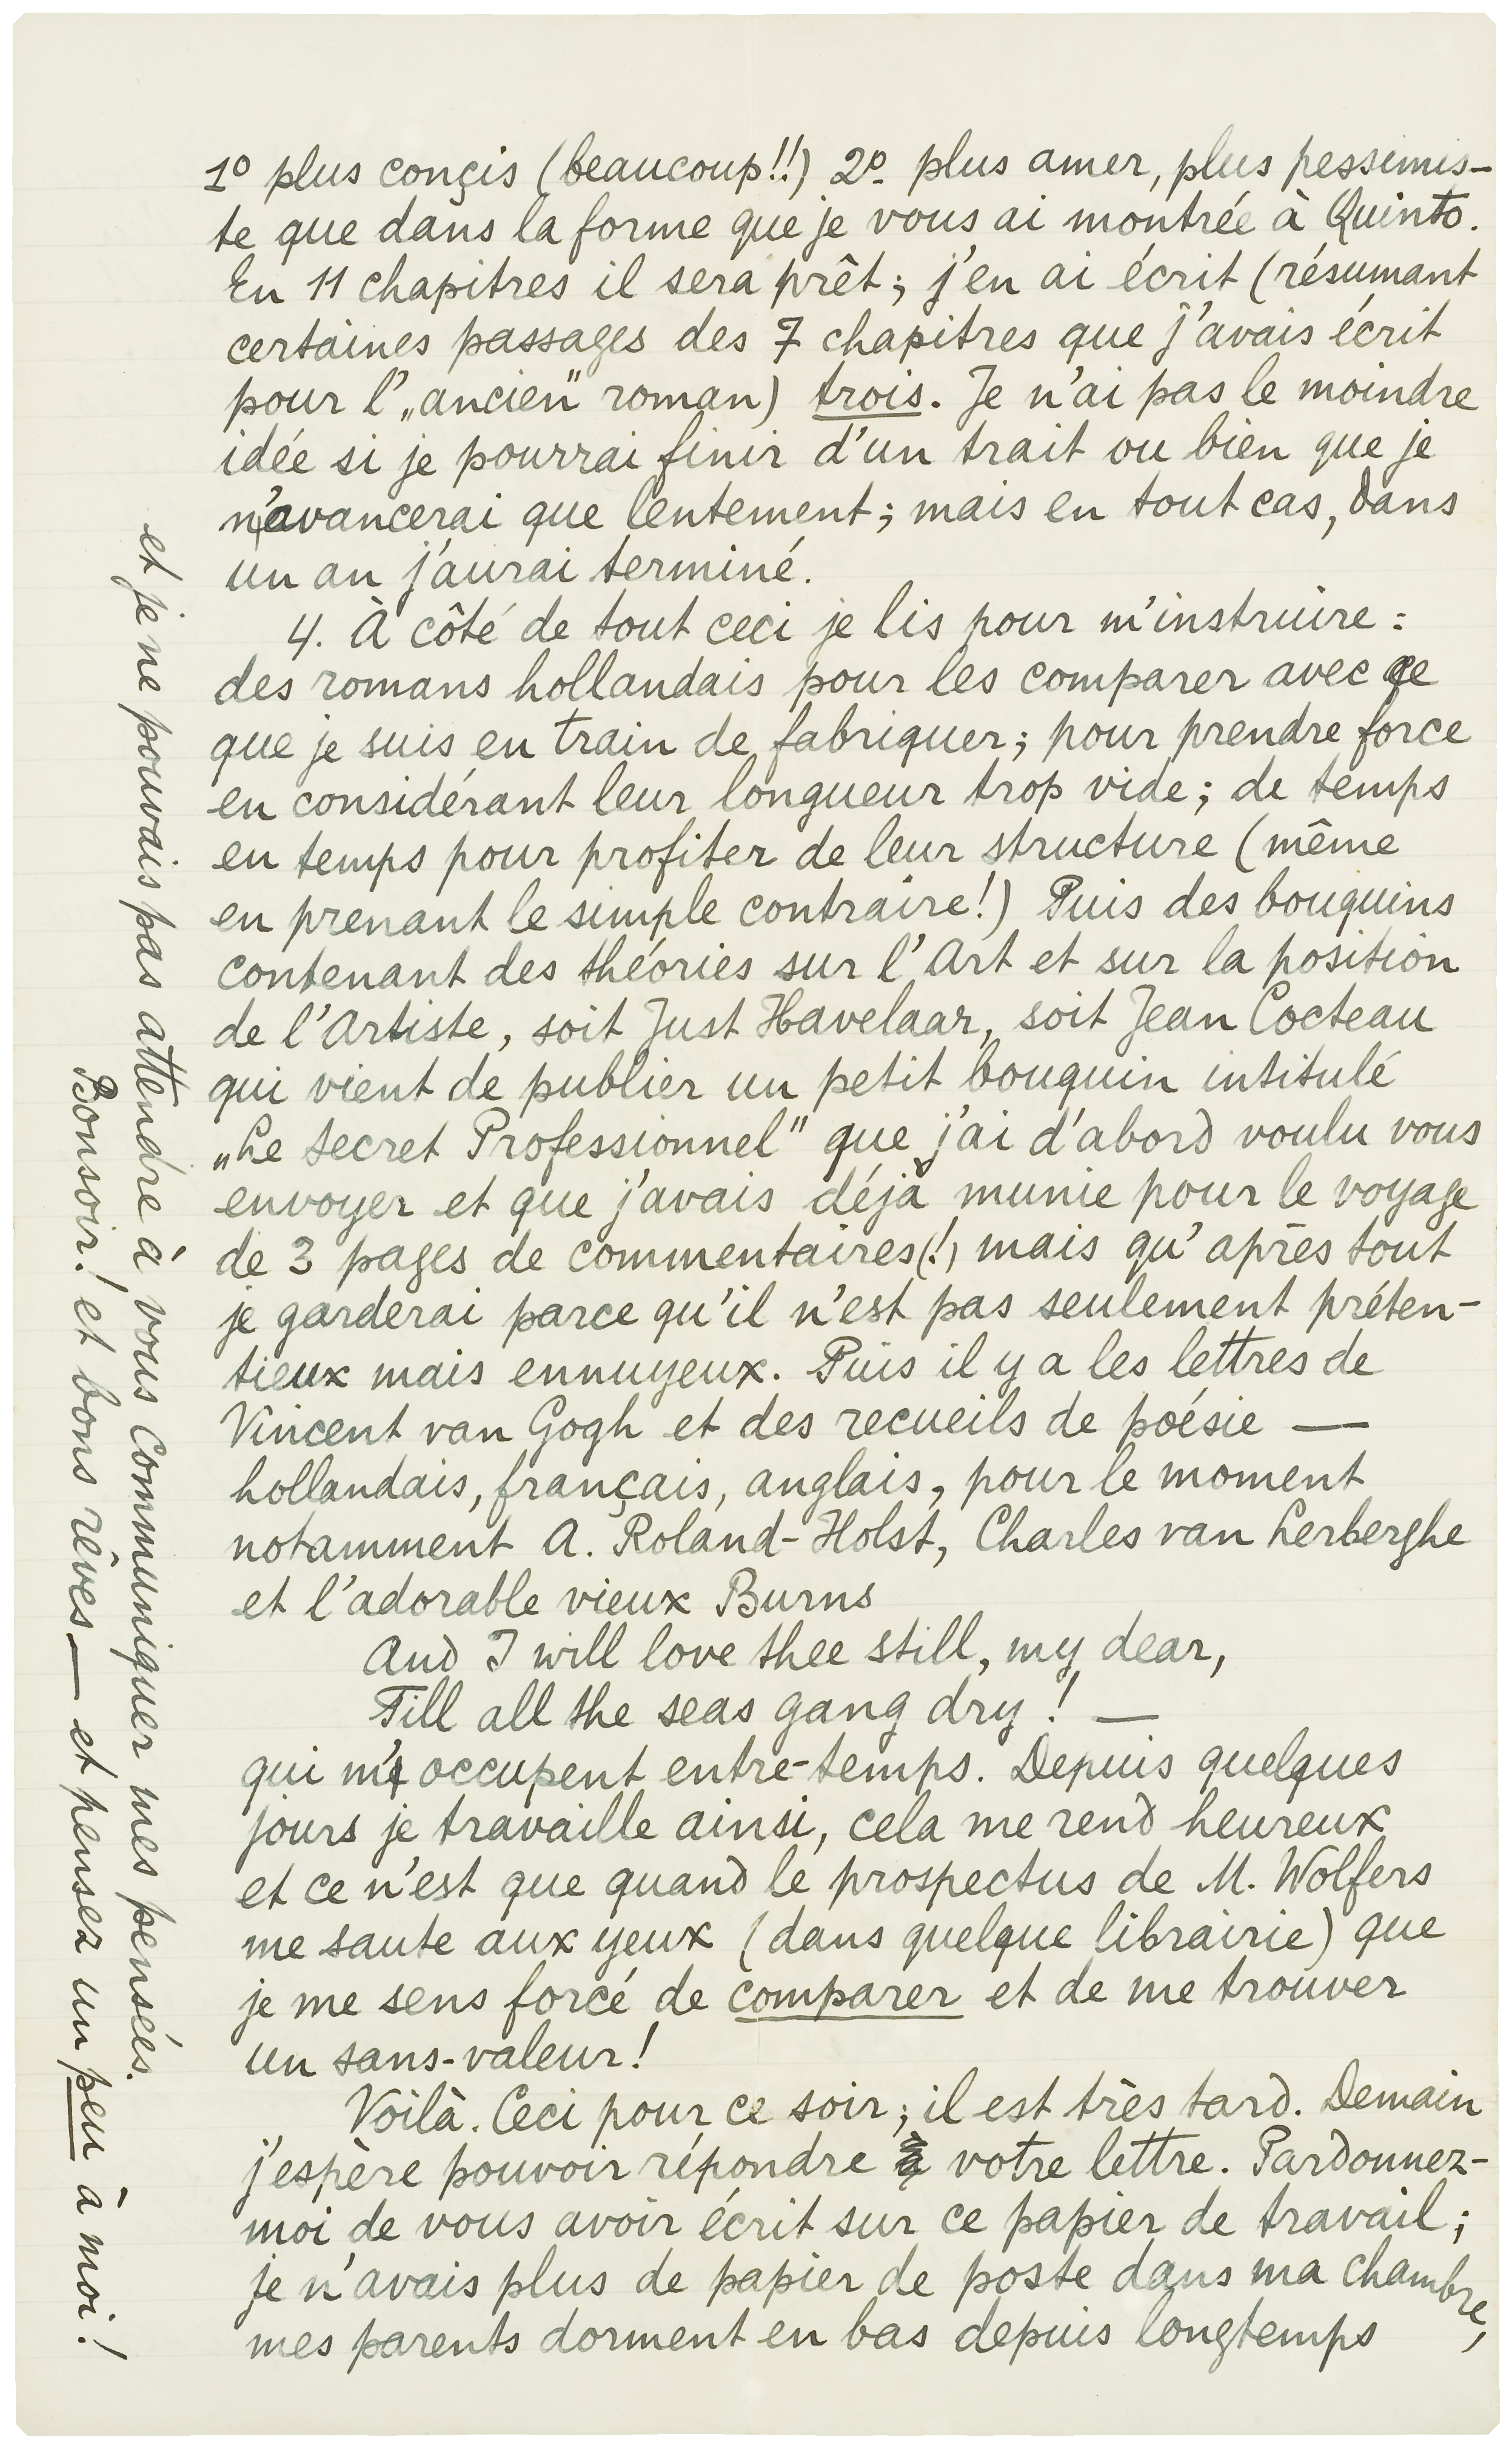 1º plus conçis (beaucoup!!) 2º plus amer, plus pessimis-
te que dans la forme que je vous ai montrée à Quinto.
En 11 chapitres il sera prêt; j'en ai écrit (résumant
certaines passages des 7 chapitres que j'avais écrit
pour l'„ancien" roman) trois. Je n'ai pas le moindre
idée si je pourrai finir d'un trait ou bien que je
n'avancerai que lentement; mais en tout cas, dans
un an j'aurai terminé.
4. À côté de tout ceci je lis pour m'instruire:
des romans hollandais pour les comparer avec ce
que je suis en train de fabriquer; pour prendre force
en considérant leur longueur trop vide; de temps
en temps pour profiter de leur structure (même
en prenant le simple contraire!) Puis des bouquins
contenant des théories sur l'Art et sur la position
de l'Artiste, soit Just Havelaar, soit Jean Cocteau
qui vient de publier un petit bouquin intitulé
„Le Secret Professionnel" que j'ai d'abord voulu vous
envoyer et que j'avais déjà munie pour le voyage
de 3 pages de commentaires(!) mais qu'après tout
je garderai parce qu'il n'est pas seulement préten-
tieux mais ennuyeux. Puis il y a les lettres de
Vincent van Gogh et des recueils de poésie —
hollandais, français, anglais, pour le moment
notamment A. Roland-Holst, Charles van Lerberghe
et l'adorable vieux Burns
And I will love thee still, my dear,
Till all the seas gang dry! —
qui m'occupent entre-temps. Depuis quelques
jours je travaille ainsi, cela me rend heureux
et ce n'est que quand le prospectus de M. Wolfers
me saute aux yeux (dans quelque librairie) que
je me sens forcé de comparer et de me trouver
un sans-valeur!
Voilà. Ceci pour ce soir; il est très tard. Demain
j'espère pouvoir répondre à votre lettre. Pardonnez-
moi de vous avoir écrit sur ce papier de travail;
je n'avais plus de papier de poste dans ma chambre,
mes parents dorment en bas depuis longtemps
et je ne pouvais pas attendre à vous communiquer mes pensées.
Bonsoir! et bons rêves — et pensez un peu à moi!